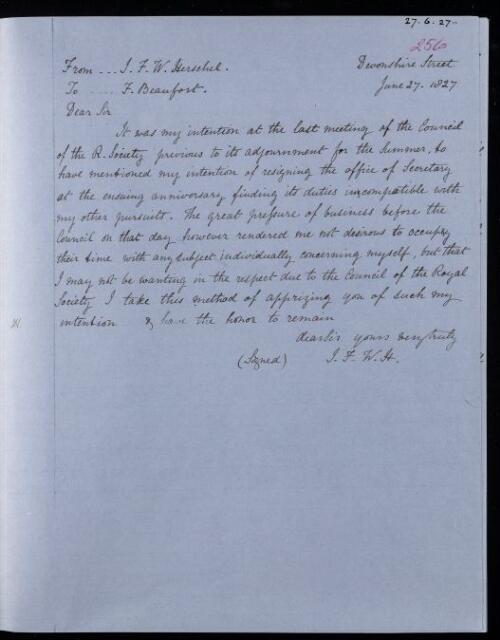 27.6.27-
256
From --- J. F. W. Herschel. Devonshire Street
To ---- F. Beaufort. June 27. 1827
Dear Sir
It was my intention at the last meeting of the Council
of the R. Society previous to its adjournment for the Summer, to
have mentioned my intention of resigning the office of Secretary
at the ensuing anniversary finding its duties incompatible with
my other pursuits. The great pressure of business before the
Council on that day however rendered me not desirous to occupy
their time with any subject individually concerning myself, but that
I may not be wanting in the respect due to the Council of the Royal
Society I take this method of apprizing you of such my
intention & have the honor to remain
dear Sir yours very truly
(Signed) J. F. W. H.